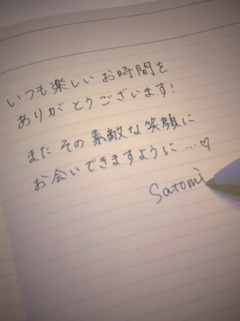 いつも楽しいお時間を
ありがとうございます!
またその素敵な笑顔に
お会いできますように…♡
Satomi